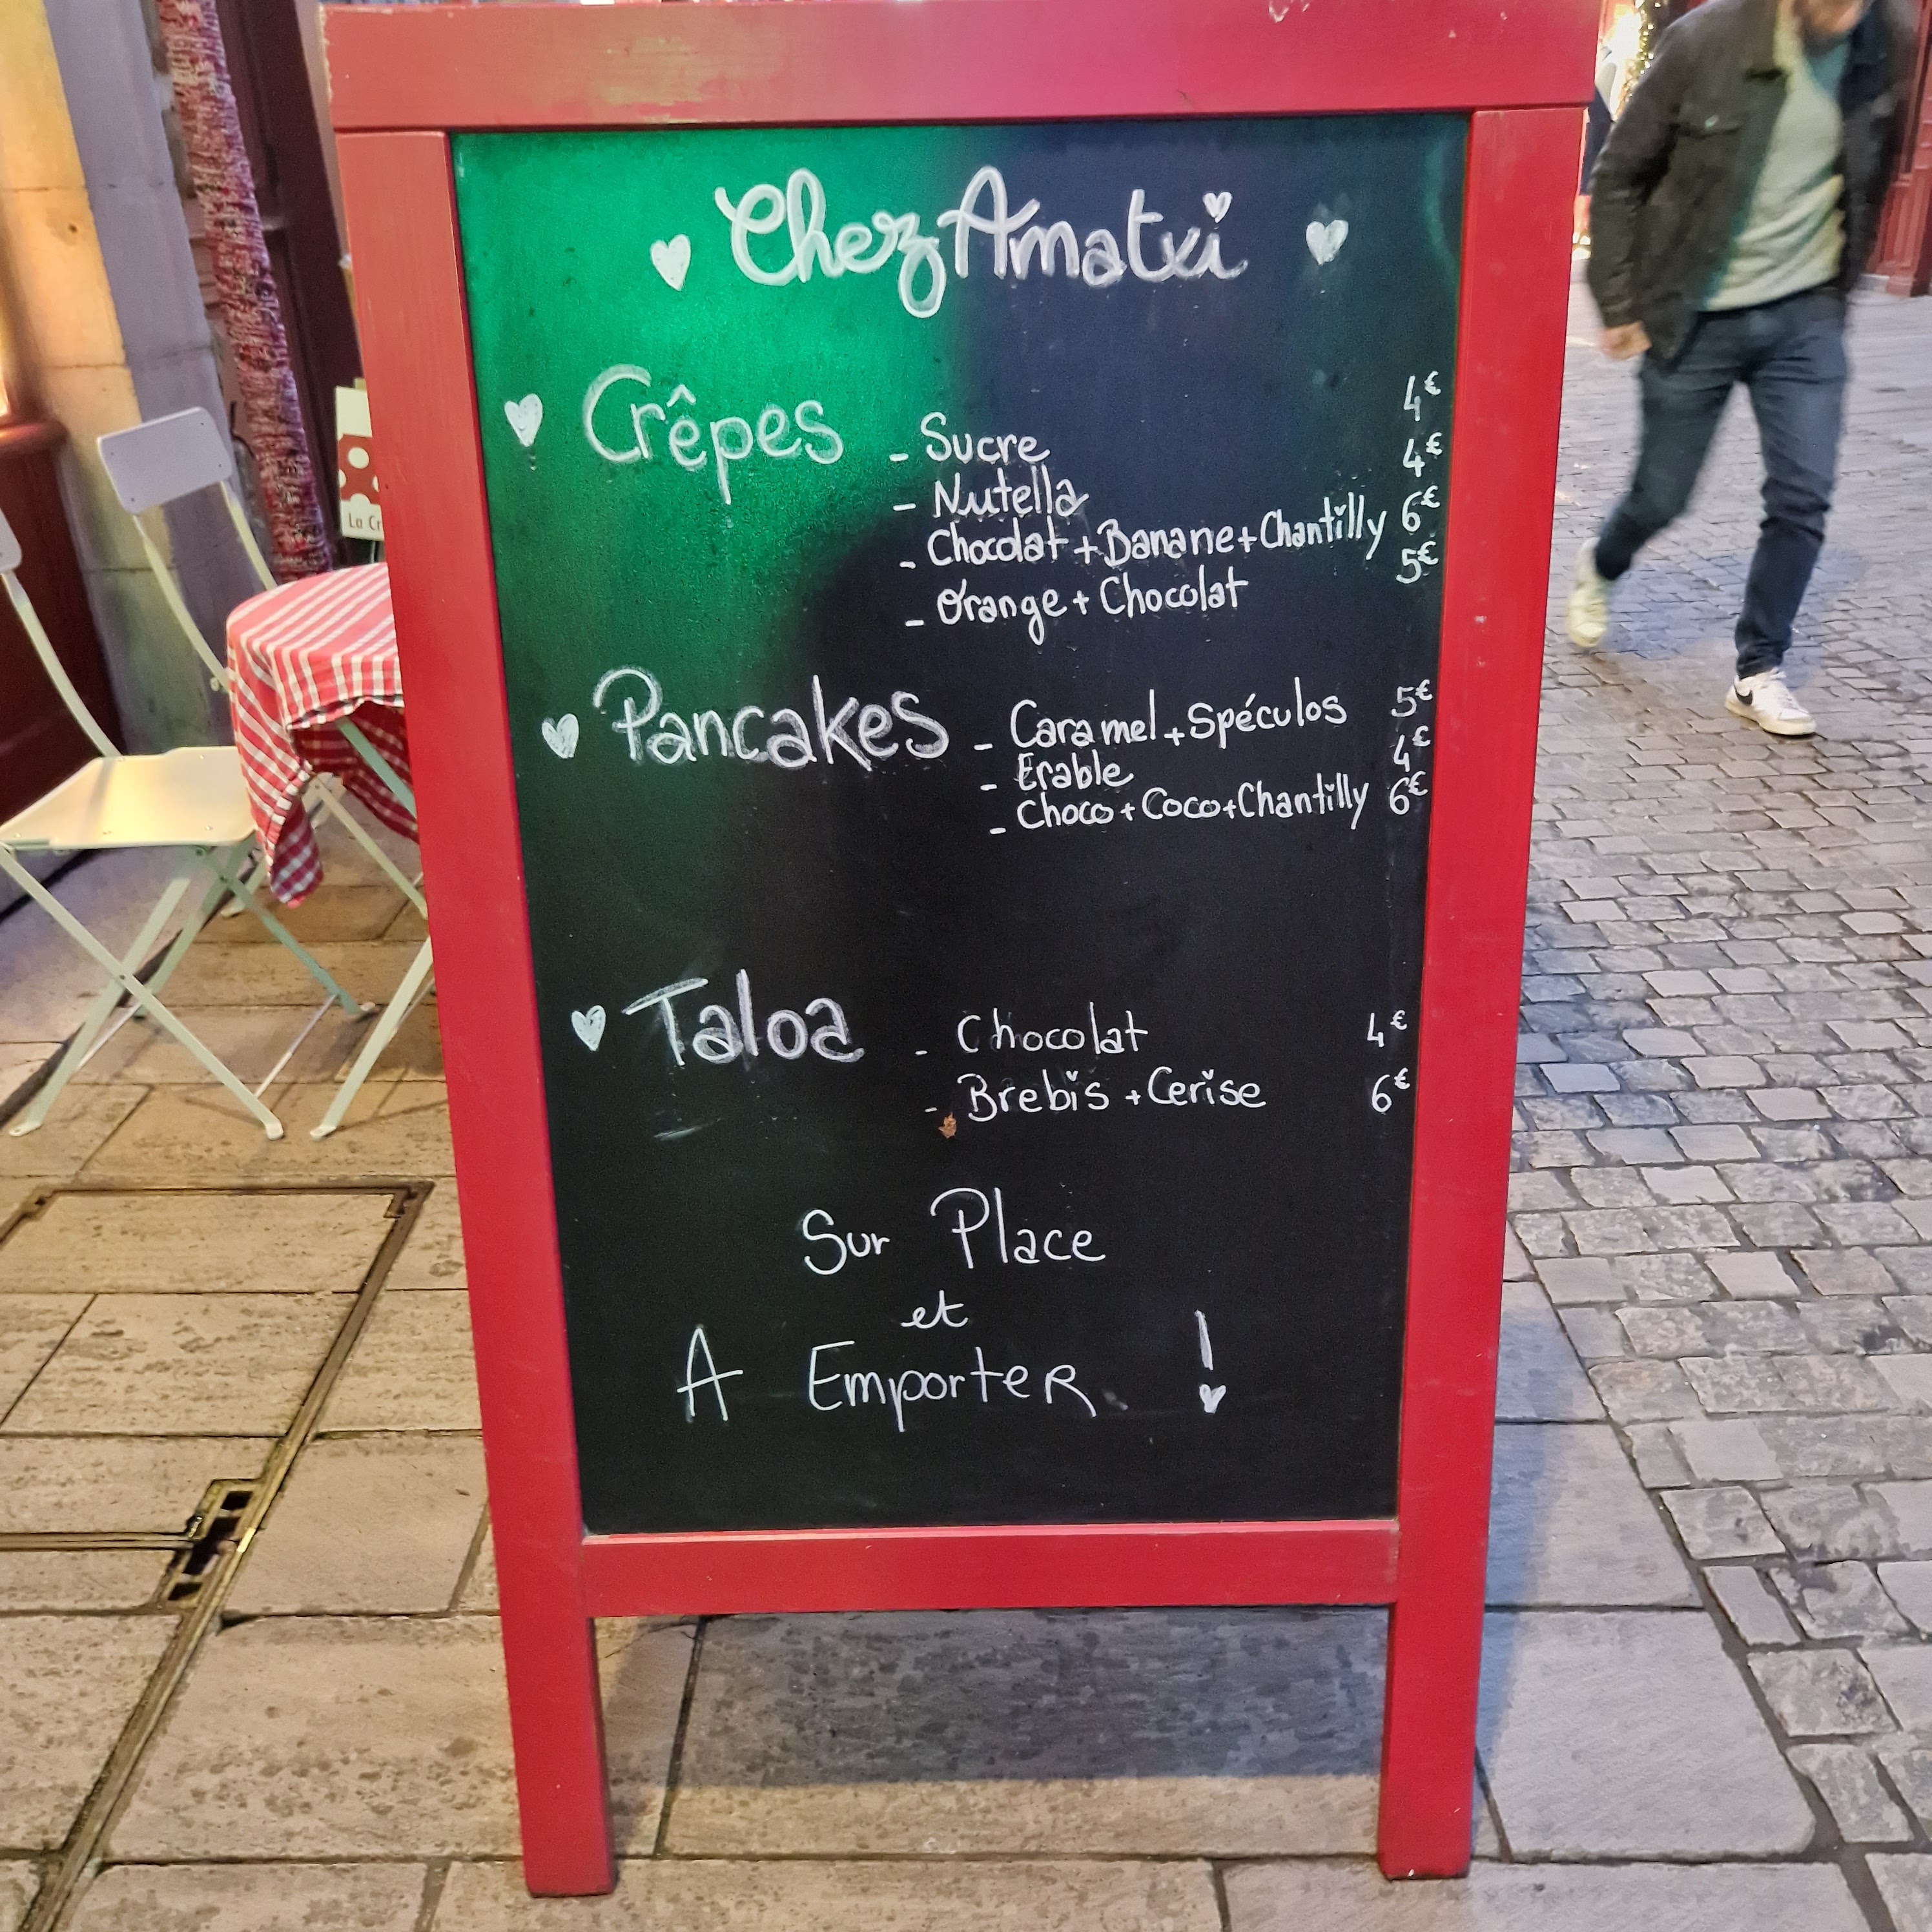 Chez Amatxi
Crêpes
- Sucre 4€
- Nutella 4€
- Chocolat + Banane + Chantilly 6€
- Orange + Chocolat 5€
Pancakes
- Caramel + Spéculos 5€
- Erable 4€
- Choco + Coco + Chantilly 6€
Taloa
- Chocolat 4€
- Brebis + Cerise 6€
Sur Place
et
A Emporter !
La Cr